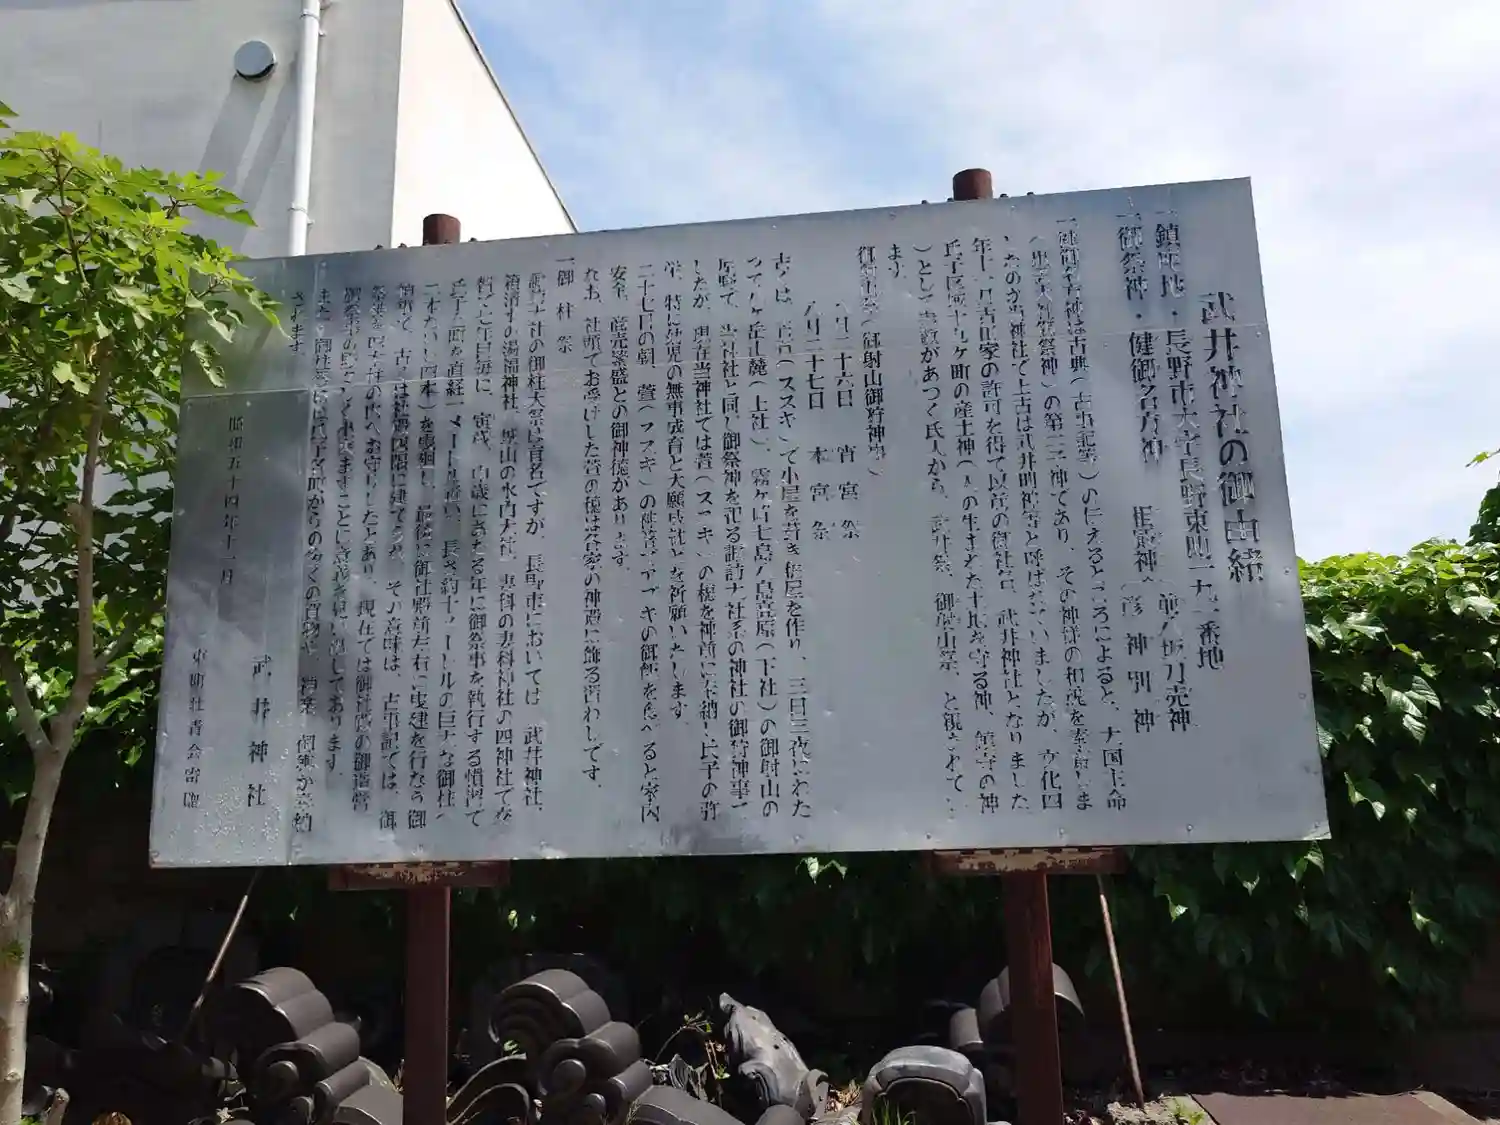 武井神社の御由緒
一鎮座地・長野市大字長野東町一九一番地
一御祭神・健御名方神 相殿神 前八坂刀売神
彦神別神
一健御名方神は古典(古事記等)の伝えるところによると、大国主命
(出雲大社御祭神)の第二子神であり、その神様の和魂を奉斎しま
したのが当神社で上古は武井明神等と呼ばれていましたが、文化四
年十一月吉田家の許可を得て以前の御社号、武井神社となりました
氏子区域十九ヶ町の産土神(人の生まれた土地を守る神、鎮守の神
)として崇敬があつく氏人から、武井祭、御射山祭、と親しまれて
ます。
御射山祭(御射山御狩神事)
八月二十六日 宵宮祭
八月二十七日 本宮祭
古くは、青萱(ススキ)で小屋を葺き仮屋を作り、三日三夜にわた
って八ヶ岳山麓(上社)、霧ヶ峰七島八島高原(下社)の御射山の
原野で、当神社と同じ御祭神を祀る諏訪大社系の神社の御狩神事で
したが、現在当神社では萱(ススキ)の穂を神前に奉納し氏子の弥
栄、特に幼児の無事成育と大願成就とを祈願いたします。
二十七日の朝、萱(ススキ)の穂箸でアズキの御飯を食べると家内
安全、商売繁盛との御神徳があります。
なお、社頭でお受けした萱の穂は各家の神殿に飾る習わしです。
一御柱祭
諏訪大社の御柱大祭は有名ですが、長野市においては、武井神社、
箱清水の湯福神社、城山の水内大社、妻科の妻科神社の四神社で交
替して七年目毎に、寅歳、申歳にあたる年に御祭事を執行する慣習で
氏子三町を直径一メートル近い、長さ約十メートルの巨大な御柱(
二本ないし四本)を曳廻し、最後に御社殿前左右に曳建を行なう御
神事で、古くは社殿四隅に建てられ、その意味は、古事記では、御
祭神を呪力柱の内へお守りしたとあり、現在では御社殿の御造営、
御祭事の時に
また、御柱祭には氏子各町からの多くの踊り、音楽、
されます。
昭和五十四年十一月
武井神社
東町壮青会寄贈